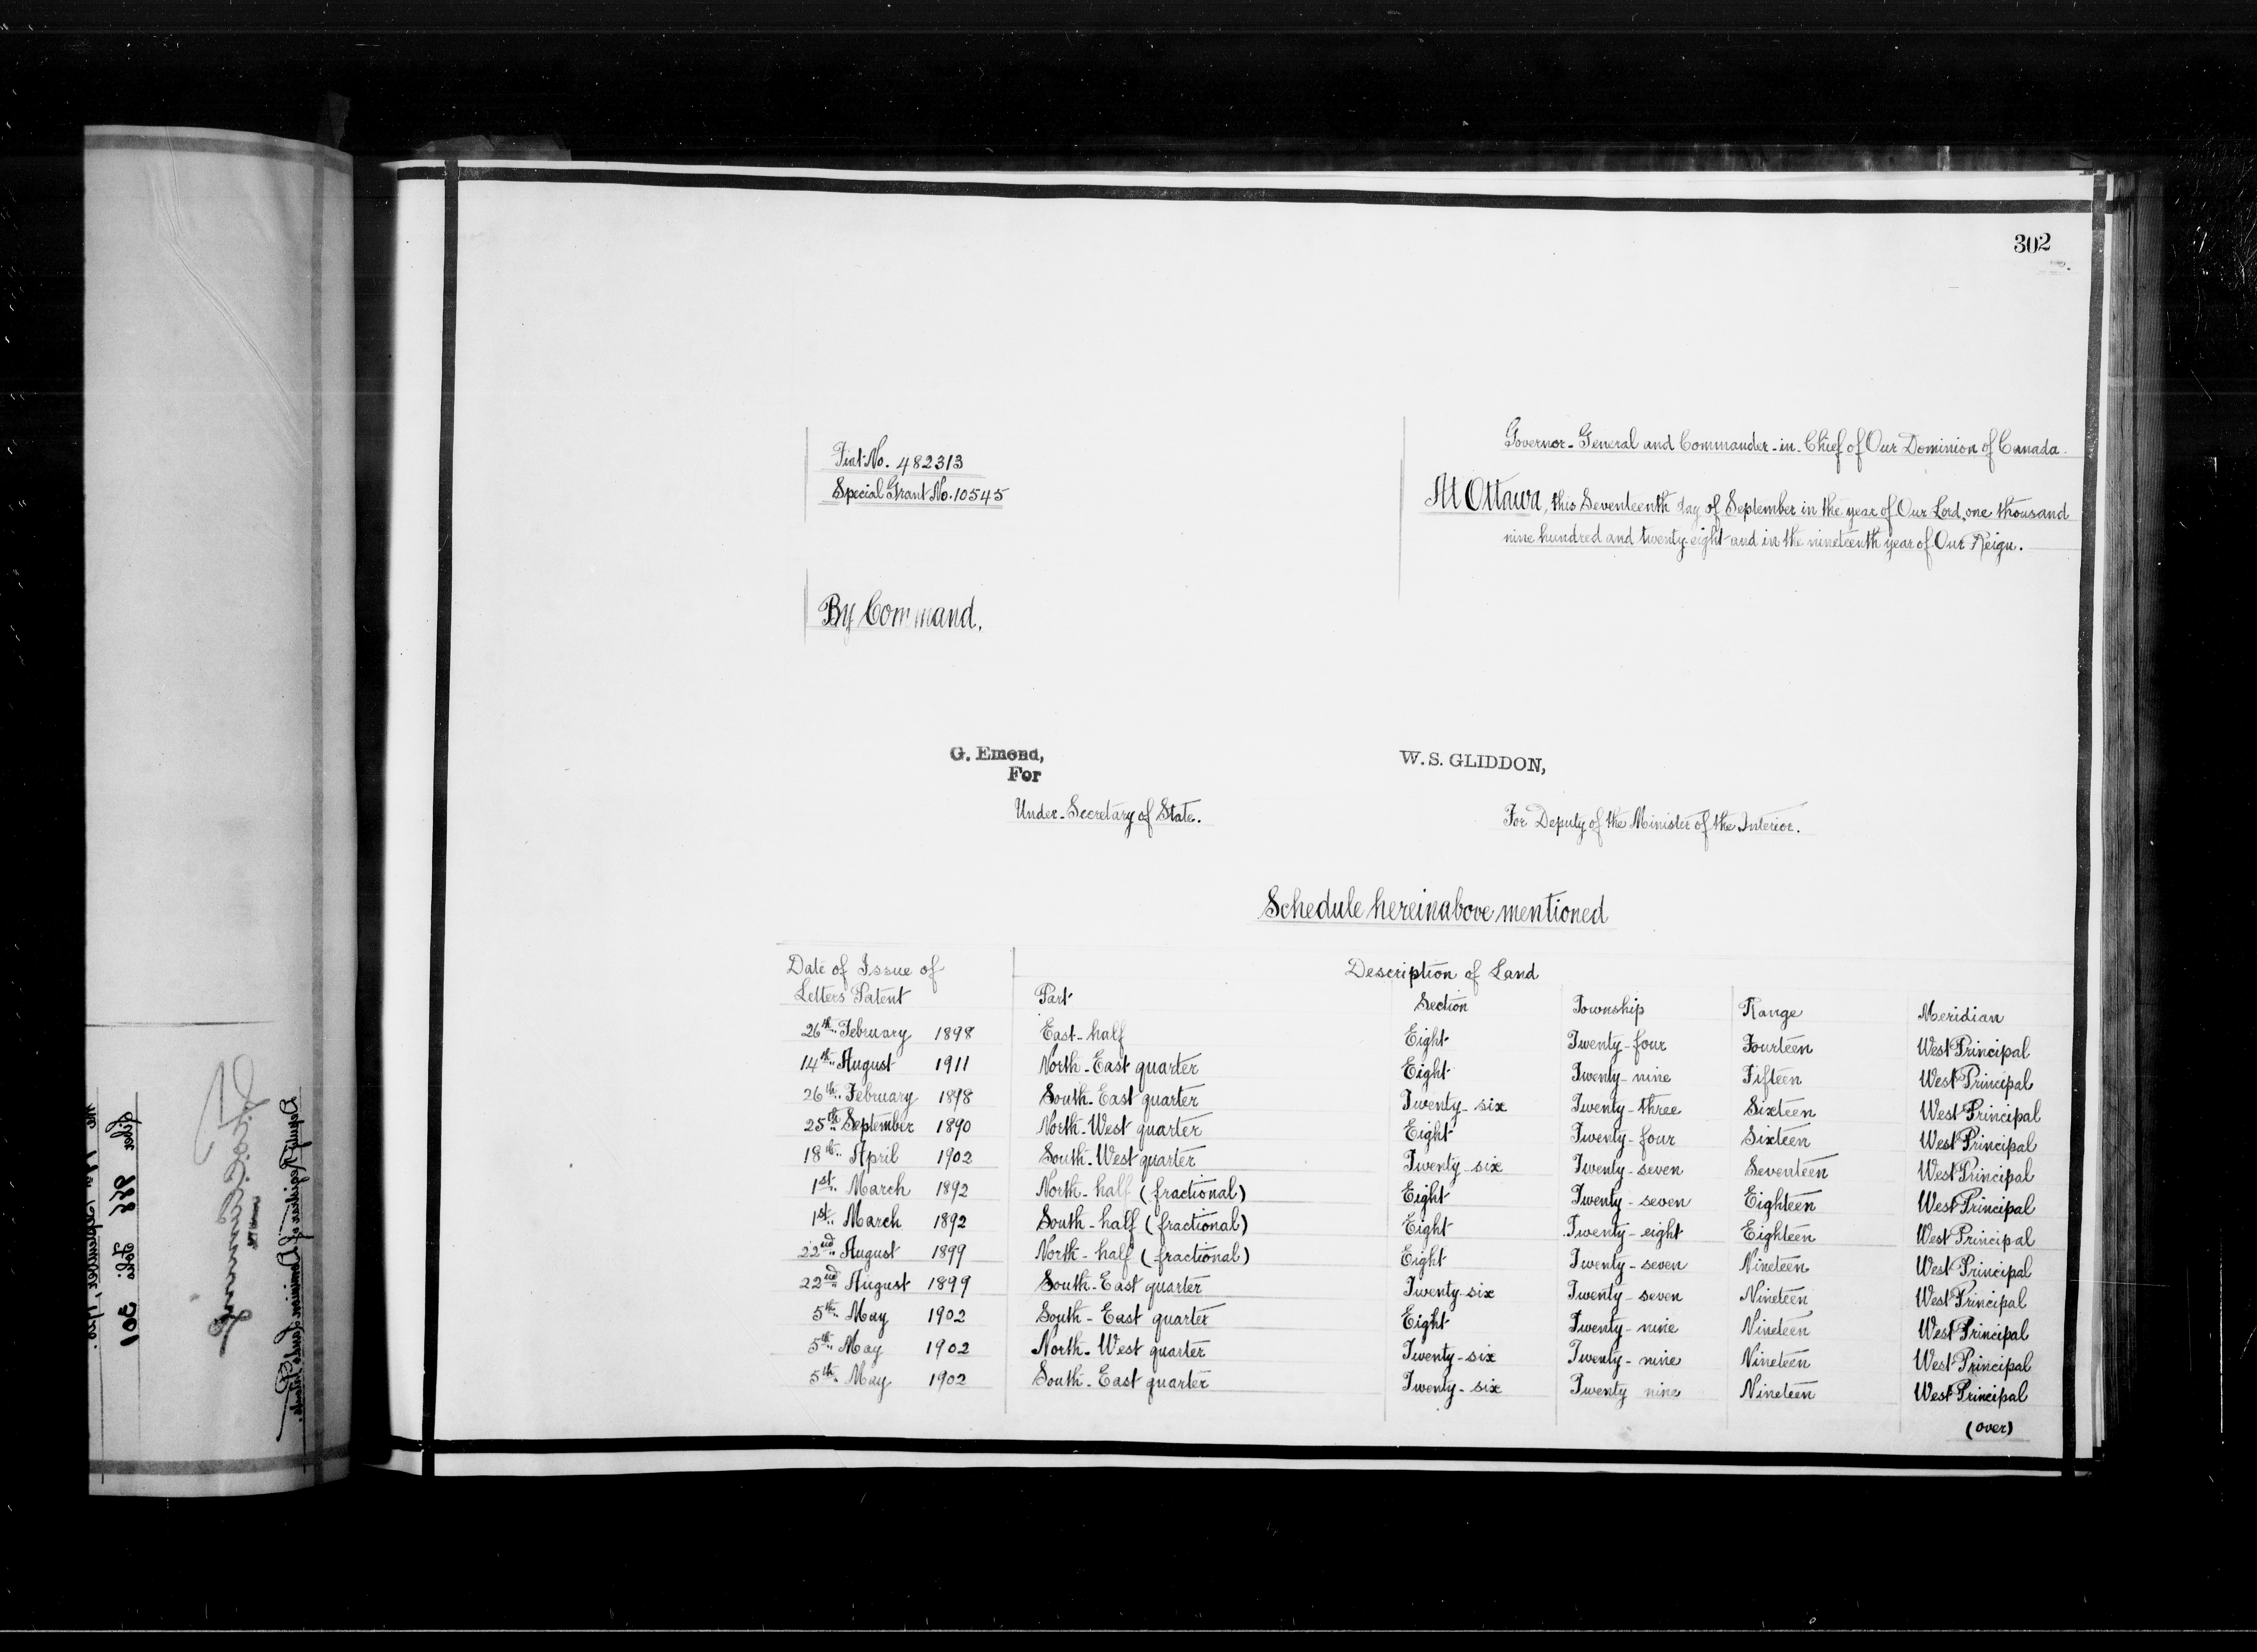 302
Governor-General and Commander-in-Chief of Our Dominion of Canada.
Fiat No. 482313
Special Grant No. 10545
At Ottawa, this Seventeenth day of September in the year of Our Lord, one thousand
nine hundred and twenty-eight and in the nineteenth year of Our Reign.
By Command,
G. Emond,
For
Under-Secretary of State.
W. S. GLIDDON,
For Deputy of the Minister of the Interior.
Schedule hereinabove mentioned
Date of Issue of Letters Patent Description of Land
Part Section Township Range Meridian
26th February 1898 East-half Eight Twenty-four Fourteen West Principal
14th August 1911 North-East quarter Eight Twenty-nine Fifteen West Principal
26th February 1898 South-East quarter Twenty-six Twenty-three Sixteen West Principal
25th September 1890 North-West quarter Eight Twenty-four Sixteen West Principal
18th April 1902 South-West quarter Twenty-six Twenty-seven Seventeen West Principal
1st March 1892 North-half (fractional) Eight Twenty-seven Eighteen West Principal
1st March 1892 South-half (fractional) Eight Twenty-eight Eighteen West Principal
22nd August 1899 North-half (fractional) Eight Twenty-seven Nineteen West Principal
22nd August 1899 South-East quarter Twenty-six Twenty-seven Nineteen West Principal
5th May 1902 South-East quarter Eight Twenty-nine Nineteen West Principal
5th May 1902 North-West quarter Twenty-six Twenty-nine Nineteen West Principal
5th May 1902 South-East quarter Twenty-six Twenty nine Nineteen West Principal
(over)
Liber 878 Folio 301
Deputy Registrar of Dominion Lands Patents.